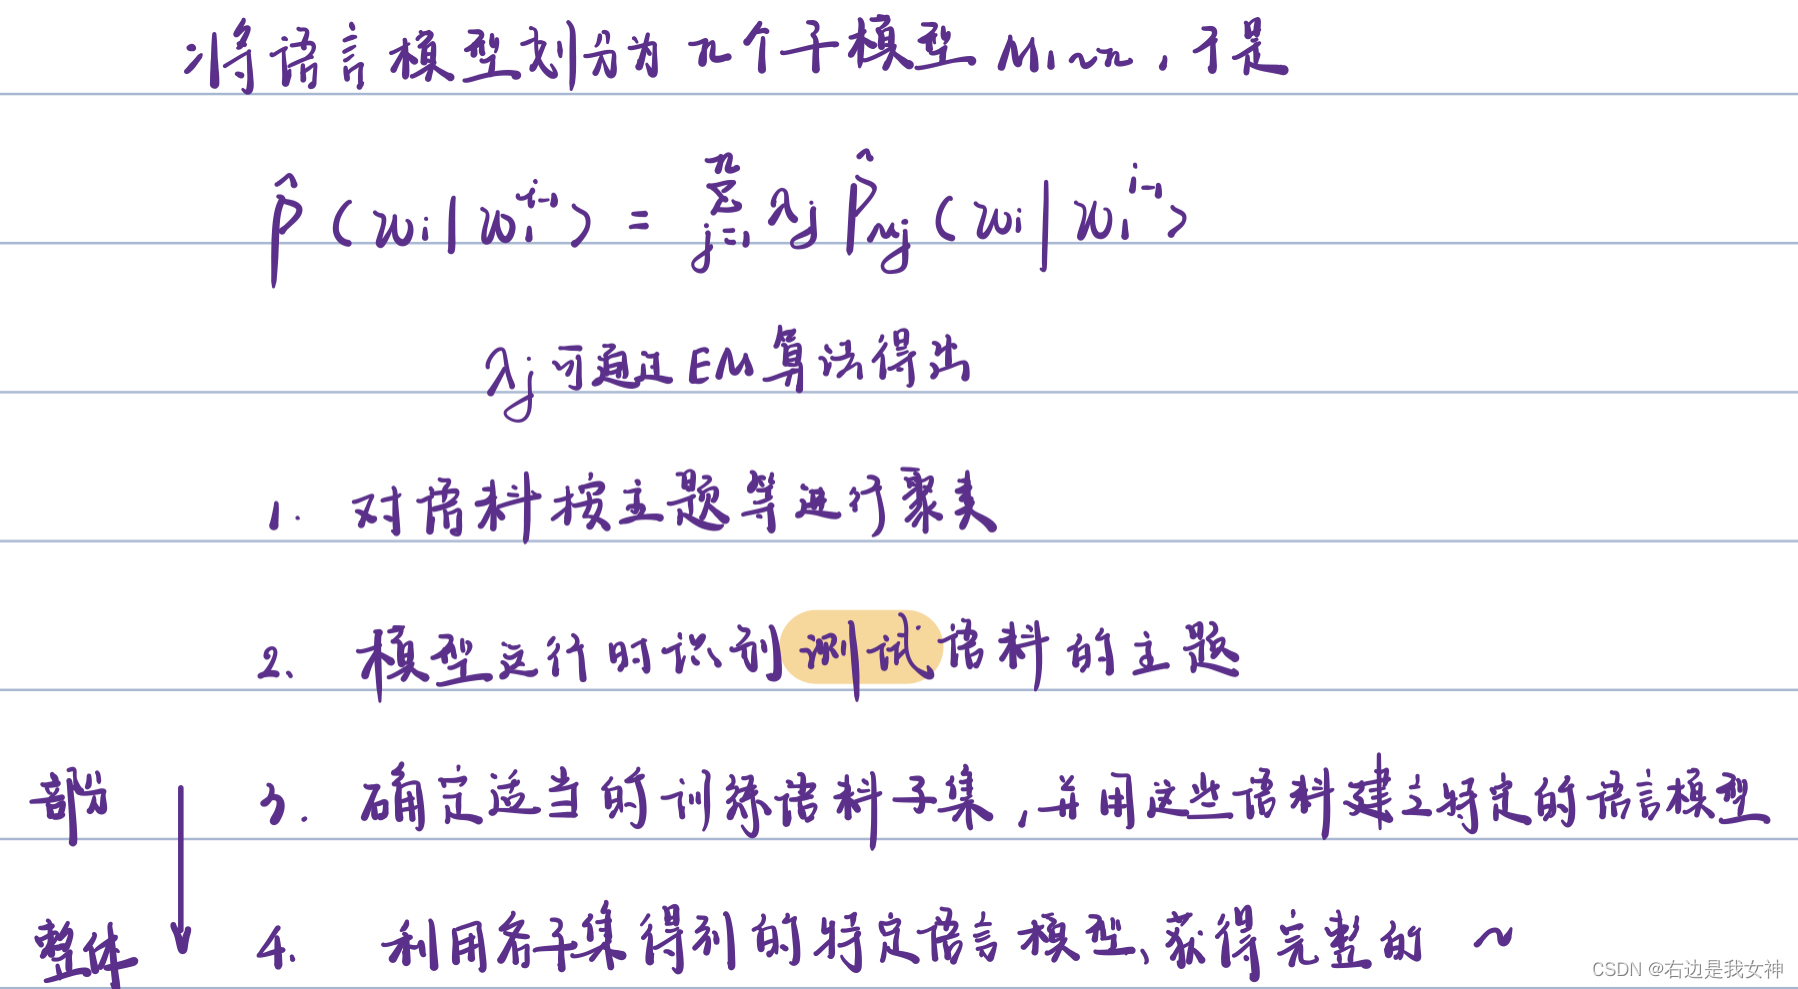 将语言模型划分为 n个子模型 M1~n，于是
P̂(wi|w1^{i-1}) = Σ_{j=1}^{n} λj P̂Mj(wi|w1^{i-1})
λj 可通过EM算法得出
1. 对语料按主题等进行聚类
2. 模型运行时识别测试语料的主题
部分 3. 确定适当的训练语料子集，并用这些语料建立特定的语言模型
整体 4. 利用各子集得到的特定语言模型、获得完整的 ~
CSDN @右边是我女神